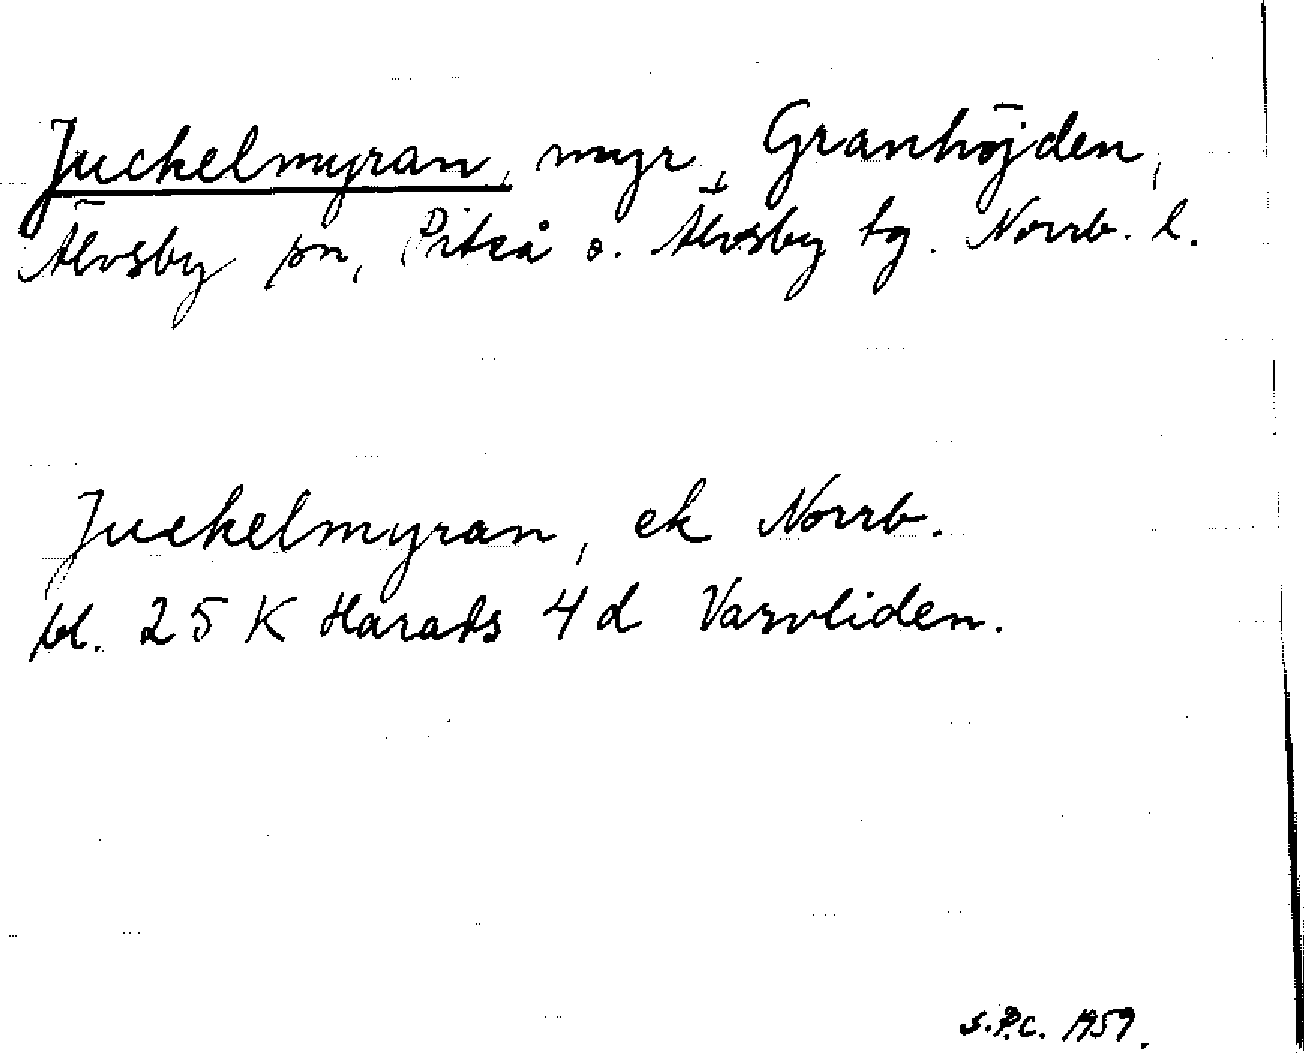 Juckelmyran, myr, Granhöjden,
Älvsby sn, Piteå o. Älvsby tg. Norrb. l.
Juckelmyran, ek Norrb.
bl. 25 K Harads 4d Varvliden.
S.P.C. 1959.